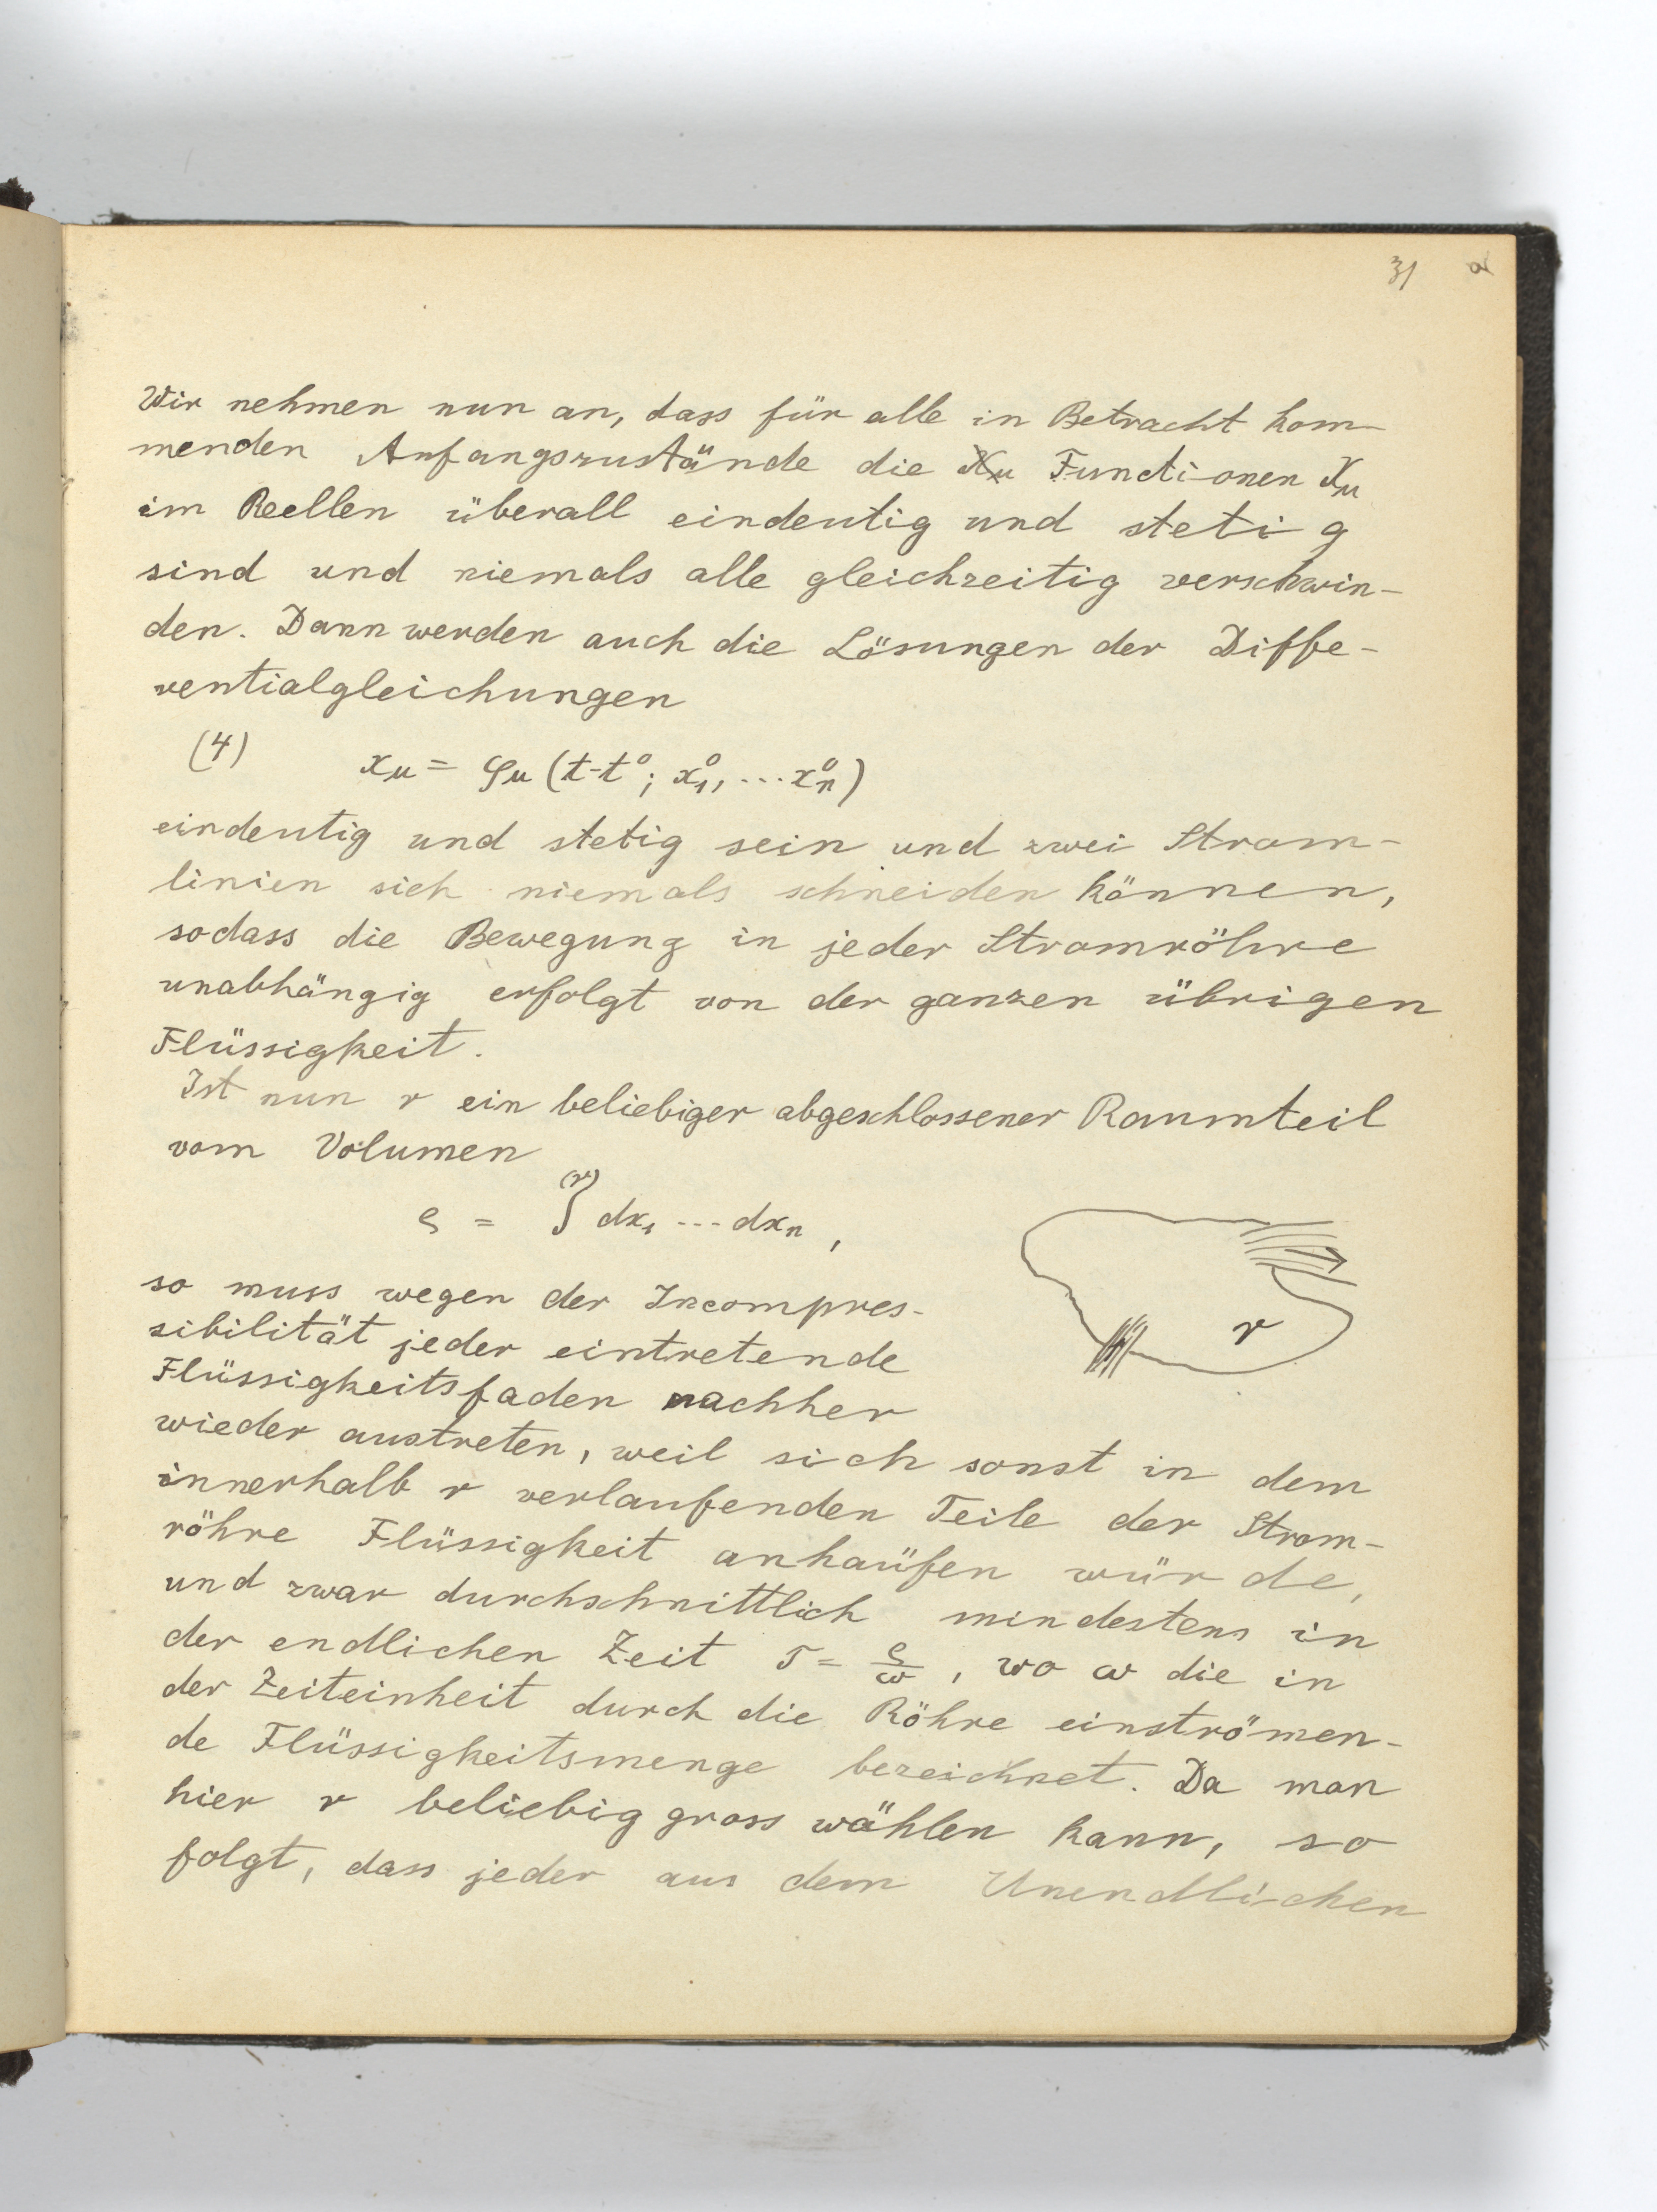 31 a
Wir nehmen nun an, dass für alle in Betracht kom-
menden Anfangszustände die Functionen Xμ
im Reellen überall eindeutig und stetig
sind und niemals alle gleichzeitig verschwin-
den. Dann werden auch die Lösungen der Diffe-
rentialgleichungen
(4) xμ = φμ (t-t⁰; x₁⁰, ... xₙ⁰)
eindeutig und stetig sein und zwei Strom-
linien sich niemals schneiden können,
sodass die Bewegung in jeder Stromröhre
unabhängig erfolgt von der ganzen übrigen
Flüssigkeit.
Ist nun r ein beliebiger abgeschlossener Raumteil
vom Volumen
ρ = ∫⁽ʳ⁾ dx₁ --- dxₙ ,
so muss wegen der Incompres-
sibilität jeder eintretende
Flüssigkeitsfaden nachher
r
wieder austreten, weil sich sonst in dem
innerhalb r verlaufenden Teile der Strom-
röhre Flüssigkeit anhaüfen würde,
und zwar durchschnittlich mindestens in
der endlichen Zeit τ = ρ/ω , wo ω die in
der Zeiteinheit durch die Röhre einströmen-
de Flüssigkeitsmenge bezeichnet. Da man
hier r beliebig gross wählen kann, so
folgt, dass jeder aus dem Unendlichen